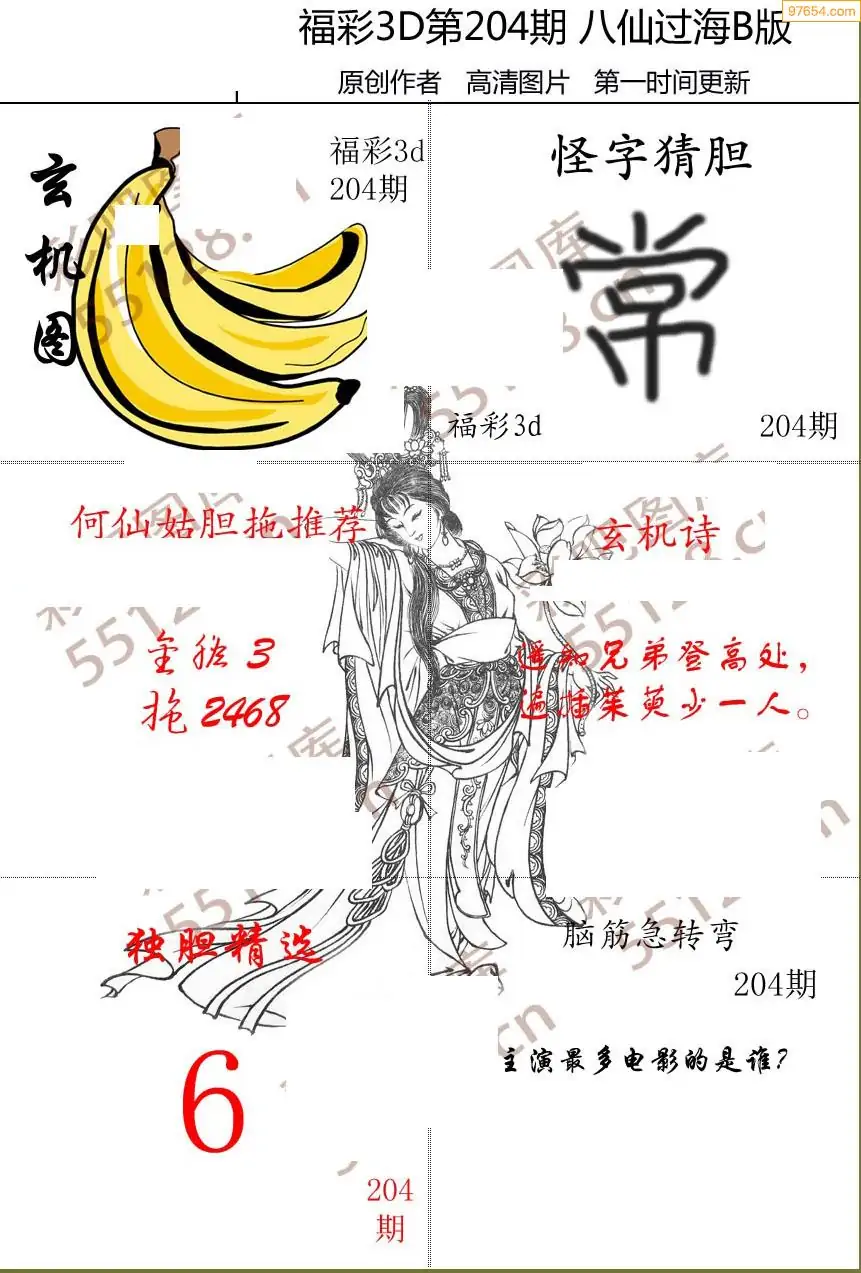 97654.com
福彩3D第204期 八仙过海B版
原创作者 高清图片 第一时间更新
玄机图
福彩3d
204期
怪字猜胆
常
福彩3d 204期
何仙姑胆拖推荐
金胆 3
拖 2468
玄机诗
遥知兄弟登高处，
遍插茱萸少一人。
独胆精选
6
204
期
脑筋急转弯
204期
主演最多电影的是谁?